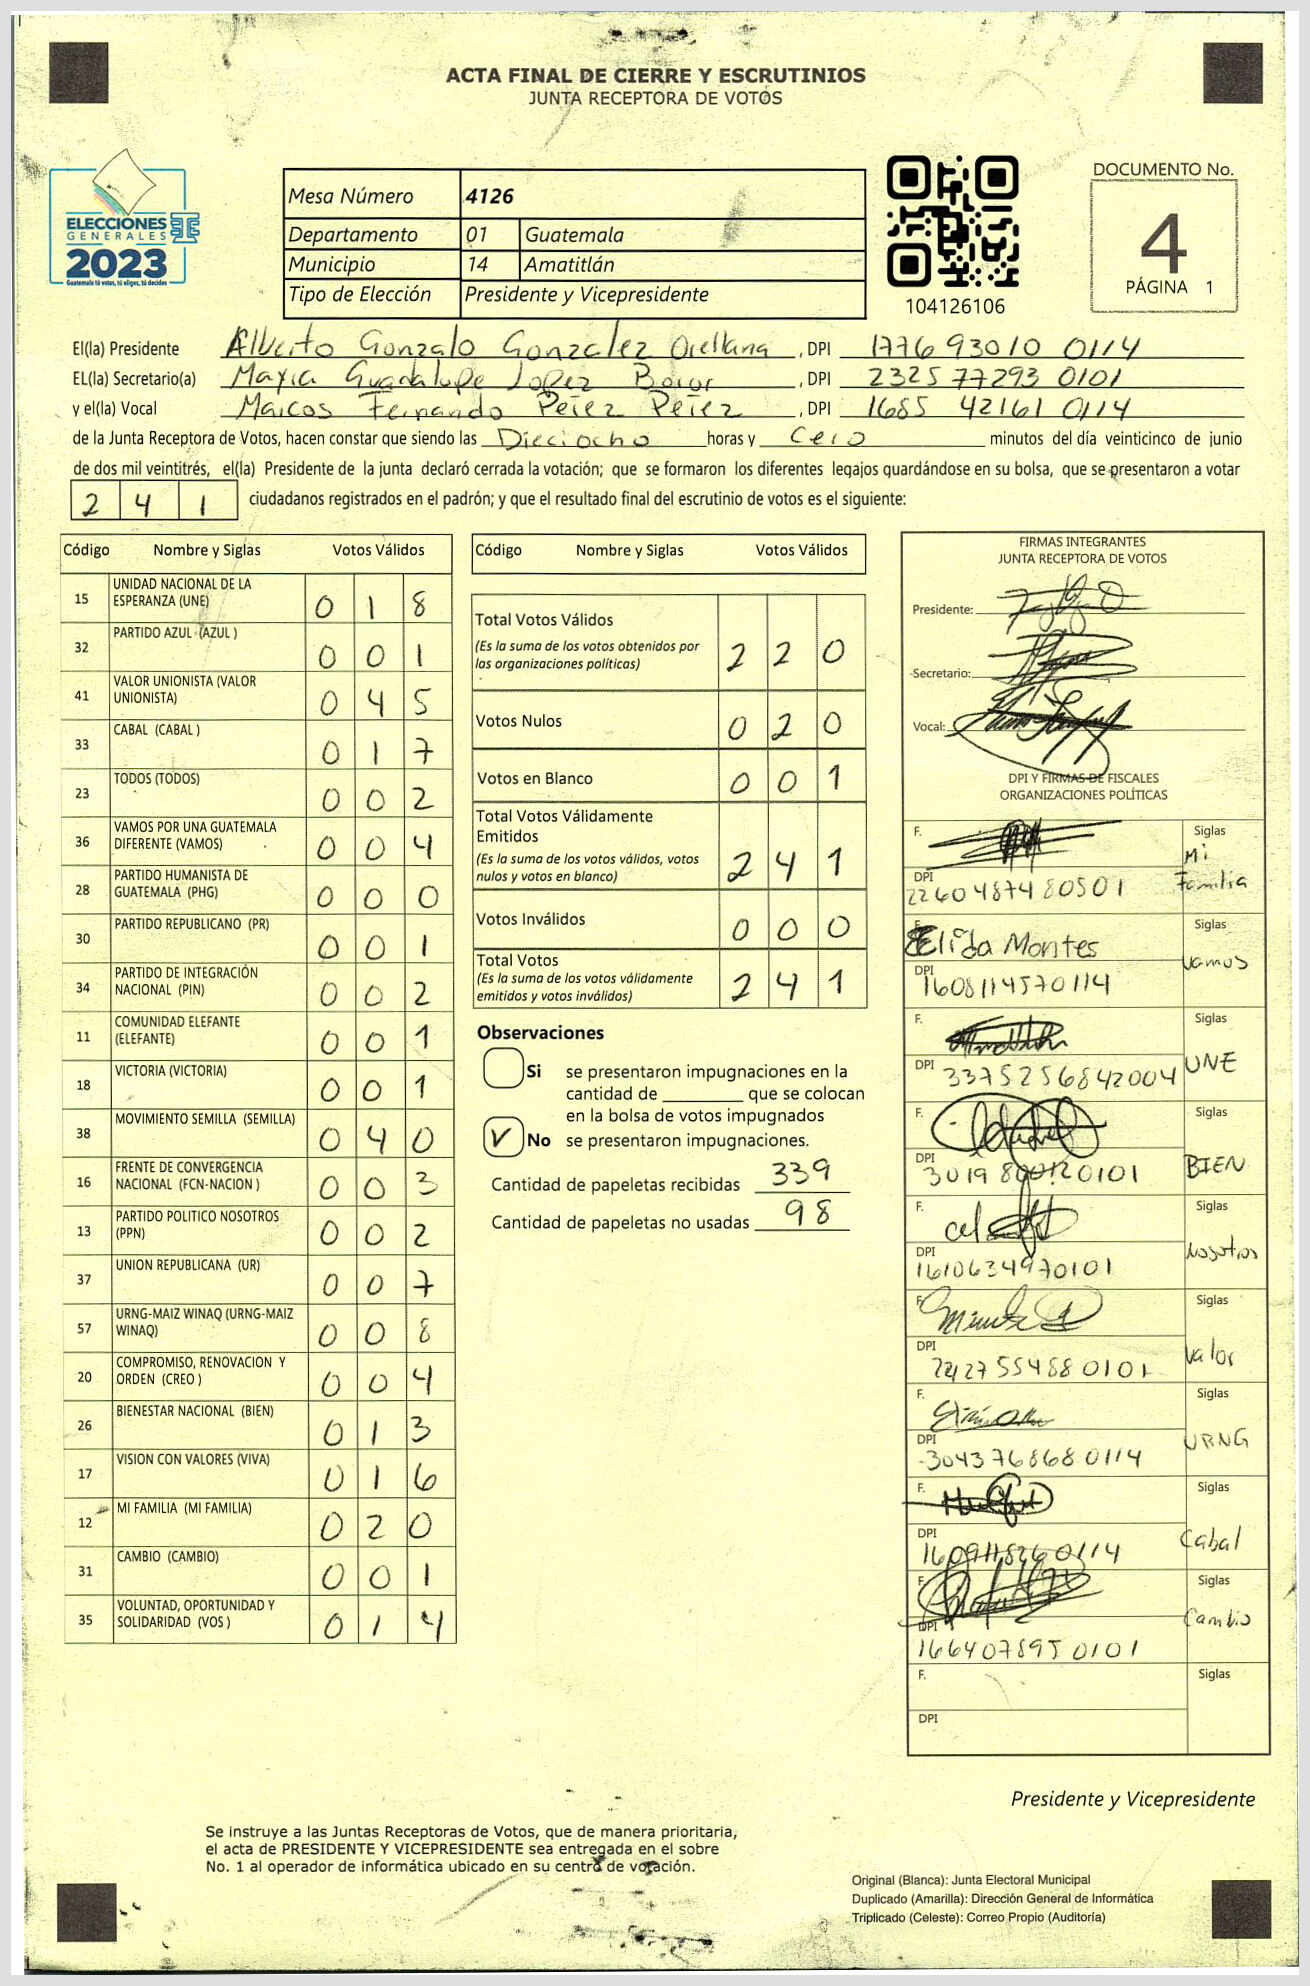 ACTA FINAL DE CIERRE Y ESCRUTINIOS
JUNTA RECEPTORA DE VOTOS
ELECCIONES
GENERALES
2023
Guatemala tú votas, tú eliges, tú decides
Mesa Número 4126
Departamento 01 Guatemala
Municipio 14 Amatitlán
Tipo de Elección Presidente y Vicepresidente
104126106
DOCUMENTO No.
4
PÁGINA 1
El(la) Presidente Alberto Gonzalo Gonzalez Orellana , DPI 177693010 0114
EL(la) Secretario(a) Mayra Guadalupe Lopez , DPI 2325 77293 0101
y el(la) Vocal Marcos Fernando Pérez Pérez , DPI 1685 42161 0114
de la Junta Receptora de Votos, hacen constar que siendo las Dieciocho horas y Cero minutos del día veinticinco de junio
de dos mil veintitrés, el(la) Presidente de la junta declaró cerrada la votación; que se formaron los diferentes legajos guardándose en su bolsa, que se presentaron a votar
2 4 1 ciudadanos registrados en el padrón; y que el resultado final del escrutinio de votos es el siguiente:
Código Nombre y Siglas Votos Válidos
15 UNIDAD NACIONAL DE LA
ESPERANZA (UNE) 0 1 8
32 PARTIDO AZUL (AZUL ) 0 0 1
41 VALOR UNIONISTA (VALOR
UNIONISTA) 0 4 5
33 CABAL (CABAL ) 0 1 7
23 TODOS (TODOS) 0 0 2
36 VAMOS POR UNA GUATEMALA
DIFERENTE (VAMOS) 0 0 4
28 PARTIDO HUMANISTA DE
GUATEMALA (PHG) 0 0 0
30 PARTIDO REPUBLICANO (PR) 0 0 1
34 PARTIDO DE INTEGRACIÓN
NACIONAL (PIN) 0 0 2
11 COMUNIDAD ELEFANTE
(ELEFANTE) 0 0 1
18 VICTORIA (VICTORIA) 0 0 1
38 MOVIMIENTO SEMILLA (SEMILLA) 0 4 0
16 FRENTE DE CONVERGENCIA
NACIONAL (FCN-NACION ) 0 0 3
13 PARTIDO POLITICO NOSOTROS
(PPN) 0 0 2
37 UNION REPUBLICANA (UR) 0 0 7
57 URNG-MAIZ WINAQ (URNG-MAIZ
WINAQ) 0 0 8
20 COMPROMISO, RENOVACION Y
ORDEN (CREO ) 0 0 4
26 BIENESTAR NACIONAL (BIEN) 0 1 3
17 VISION CON VALORES (VIVA) 0 1 6
12 MI FAMILIA (MI FAMILIA) 0 2 0
31 CAMBIO (CAMBIO) 0 0 1
35 VOLUNTAD, OPORTUNIDAD Y
SOLIDARIDAD (VOS ) 0 1 4
Código Nombre y Siglas Votos Válidos
Total Votos Válidos
(Es la suma de los votos obtenidos por
las organizaciones políticas) 2 2 0
Votos Nulos 0 2 0
Votos en Blanco 0 0 1
Total Votos Válidamente
Emitidos
(Es la suma de los votos válidos, votos
nulos y votos en blanco) 2 4 1
Votos Inválidos 0 0 0
Total Votos
(Es la suma de los votos válidamente
emitidos y votos inválidos) 2 4 1
Observaciones
Si se presentaron impugnaciones en la
cantidad de que se colocan
en la bolsa de votos impugnados
✓ No se presentaron impugnaciones.
Cantidad de papeletas recibidas 339
Cantidad de papeletas no usadas 98
FIRMAS INTEGRANTES
JUNTA RECEPTORA DE VOTOS
Presidente:
Secretario:
Vocal:
DPI Y FIRMAS DE FISCALES
ORGANIZACIONES POLÍTICAS
F. Siglas
Mi
Familia
DPI
2260487480501
F. Elida Montes Siglas
Vamos
DPI
1608114570114
F. Siglas
UNE
DPI 3375256842004
F. Siglas
BIEN
DPI
3019 800120101
F. Siglas
Nosotros
DPI
1610634970101
F. Siglas
Valor
DPI
F. Siglas
URNG
DPI
3043768680114
F. Siglas
Cabal
DPI
F. Siglas
Cambio
DPI
1664078950101
F. Siglas
DPI
Presidente y Vicepresidente
Se instruye a las Juntas Receptoras de Votos, que de manera prioritaria,
el acta de PRESIDENTE Y VICEPRESIDENTE sea entregada en el sobre
No. 1 al operador de informática ubicado en su centro de votación.
Original (Blanca): Junta Electoral Municipal
Duplicado (Amarilla): Dirección General de Informática
Triplicado (Celeste): Correo Propio (Auditoría)